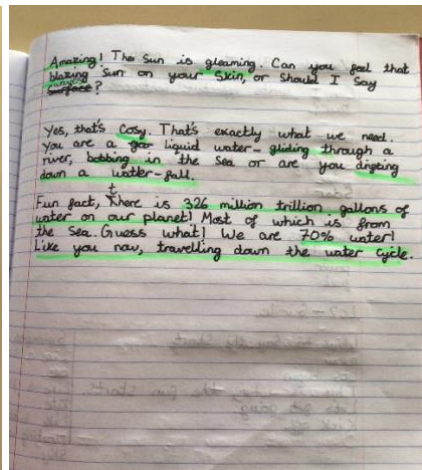 Amazing! The Sun is gleaming. Can you feel that
blazing Sun on your Skin, or Should I Say
surface?
Yes, that's Cosy. That's exactly what we need.
You are a gas liquid water- gliding through a
river, bobbing in the Sea or are you dripping
down a water-fall.
Fun fact, there is 326 million trillion gallons of
water on our planet! Most of which is from
the Sea. Guess what! We are 70% water!
Like you now, travelling down the water Cycle.